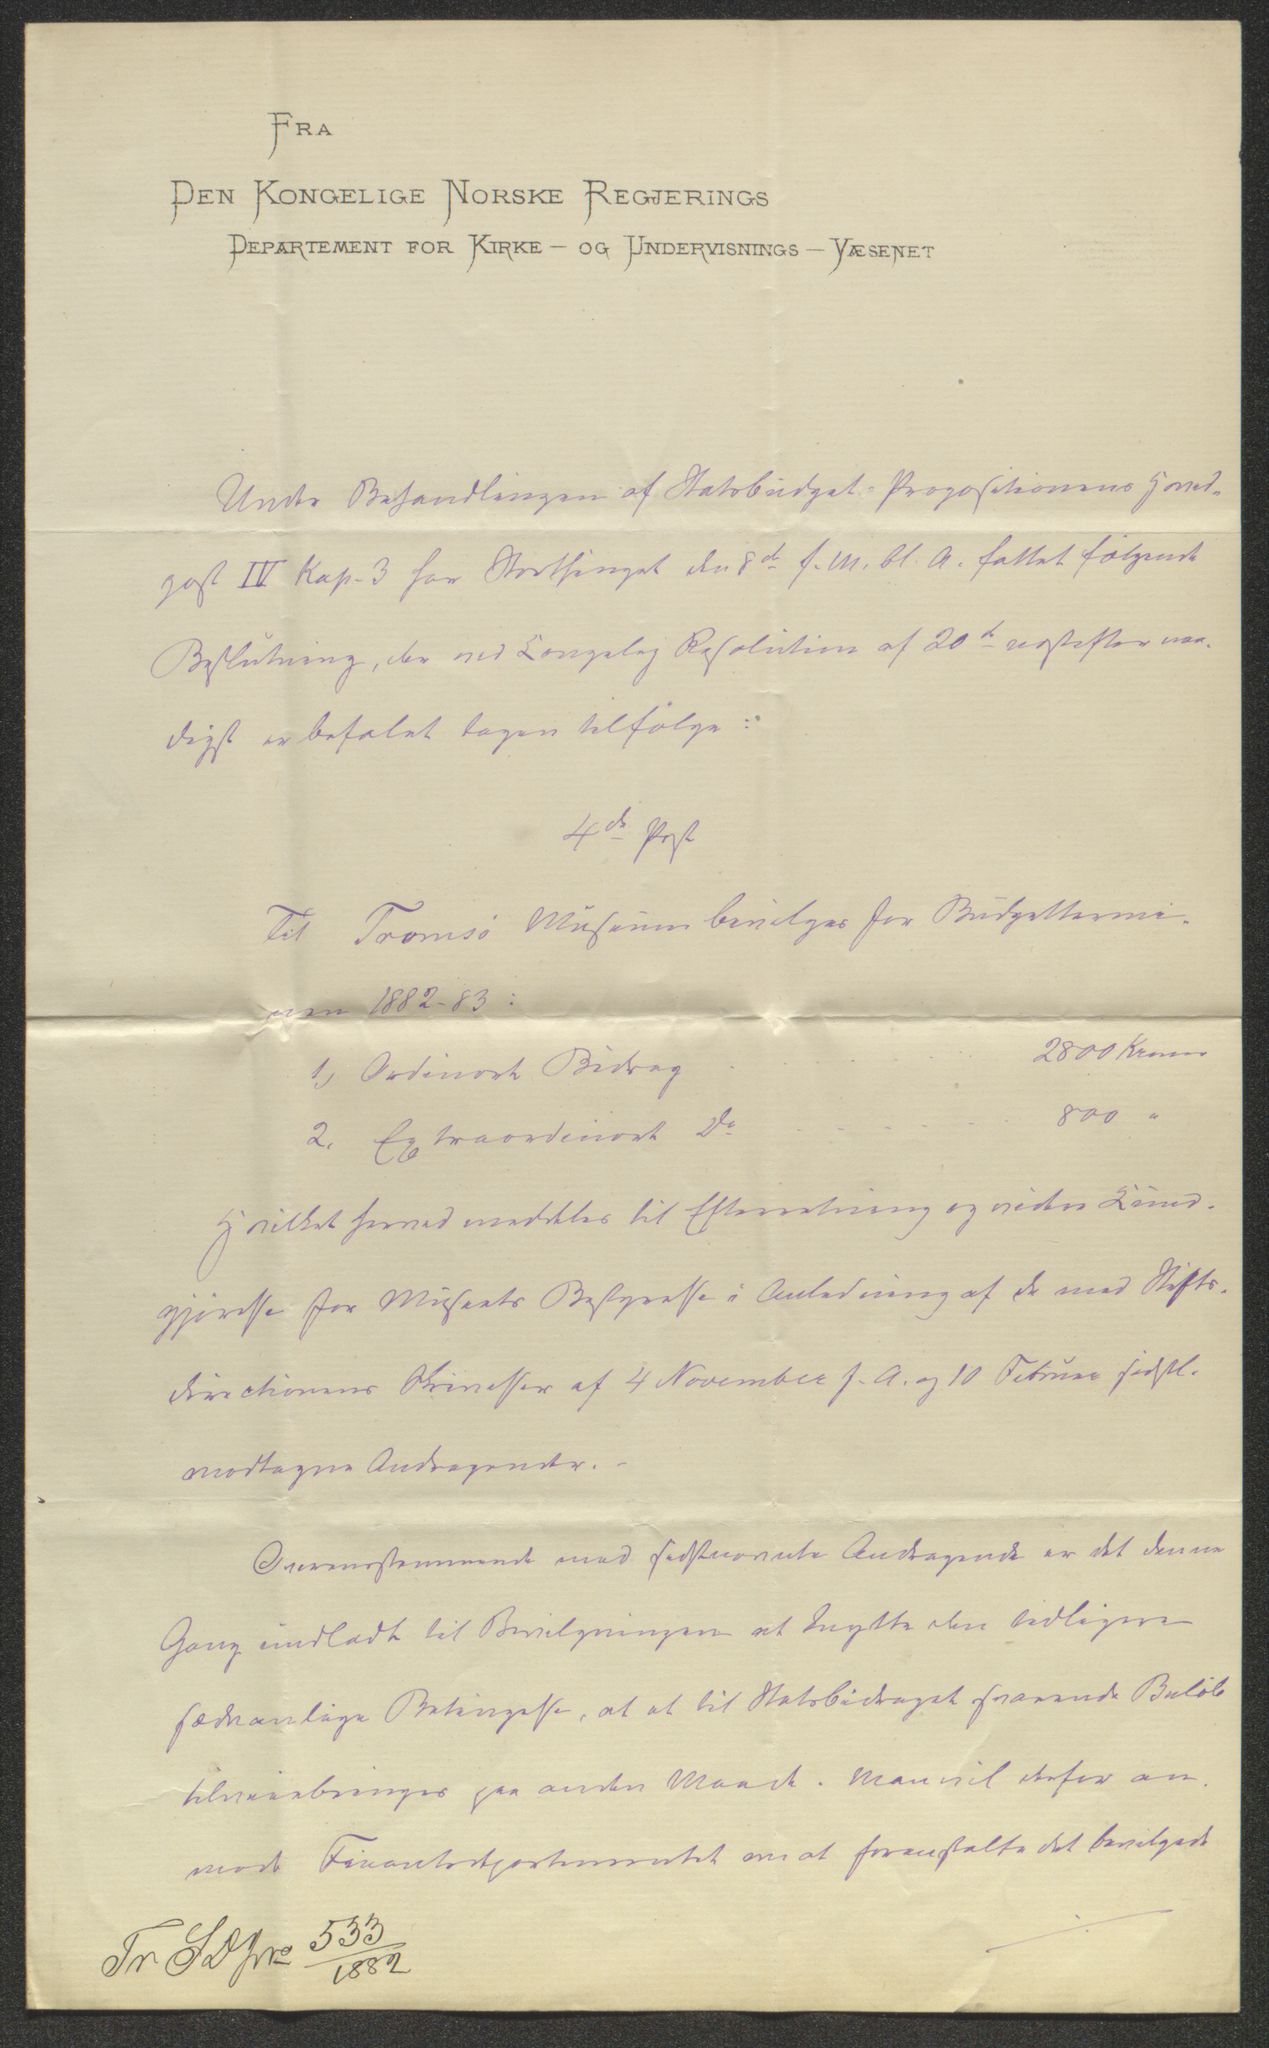 FRA
DEN KONGELIGE NORSKE REGJERINGS
DEPARTEMENT FOR KIRKE – OG UNDERVISNINGS – VÆSENET
Under Behandlingen af Statsbudget-Propositionens Hoved-
post IV Kap. 3 har Storthinget den 8de f. M. bl. A. fattet følgende
Beslutning, der ved Kongelig Resolution af 20de næstefter naa-
digst er befalet tagen tilfølge:
4de Post
Til Tromsø Museum bevilges for Budgettermi-
nen 1882-83:
1, Ordinært Bidrag 2800 Kroner
2, Extraordinært Do 800 "
Hvilket herved meddeles til Efterretning og videre Kund-
gjørelse for Museets Bestyrelse i Anledning af de med Stifts-
directionens Skrivelser af 4 November f. A. og 10 Februar sidstl.
modtagne Andragender. -
Overensstemmende med sidstnævnte Andragende er det denne
Gang undladt til Bevilgningen at knytte den tidligere
sædvanlige Betingelse, at et til Statsbidraget svarende Beløb
tilveiebringes paa anden Maade. Man vil derfor an-
mode Finantsdepartementet om at foranstalte det bevilgede
Tr SD Jno 533/1882